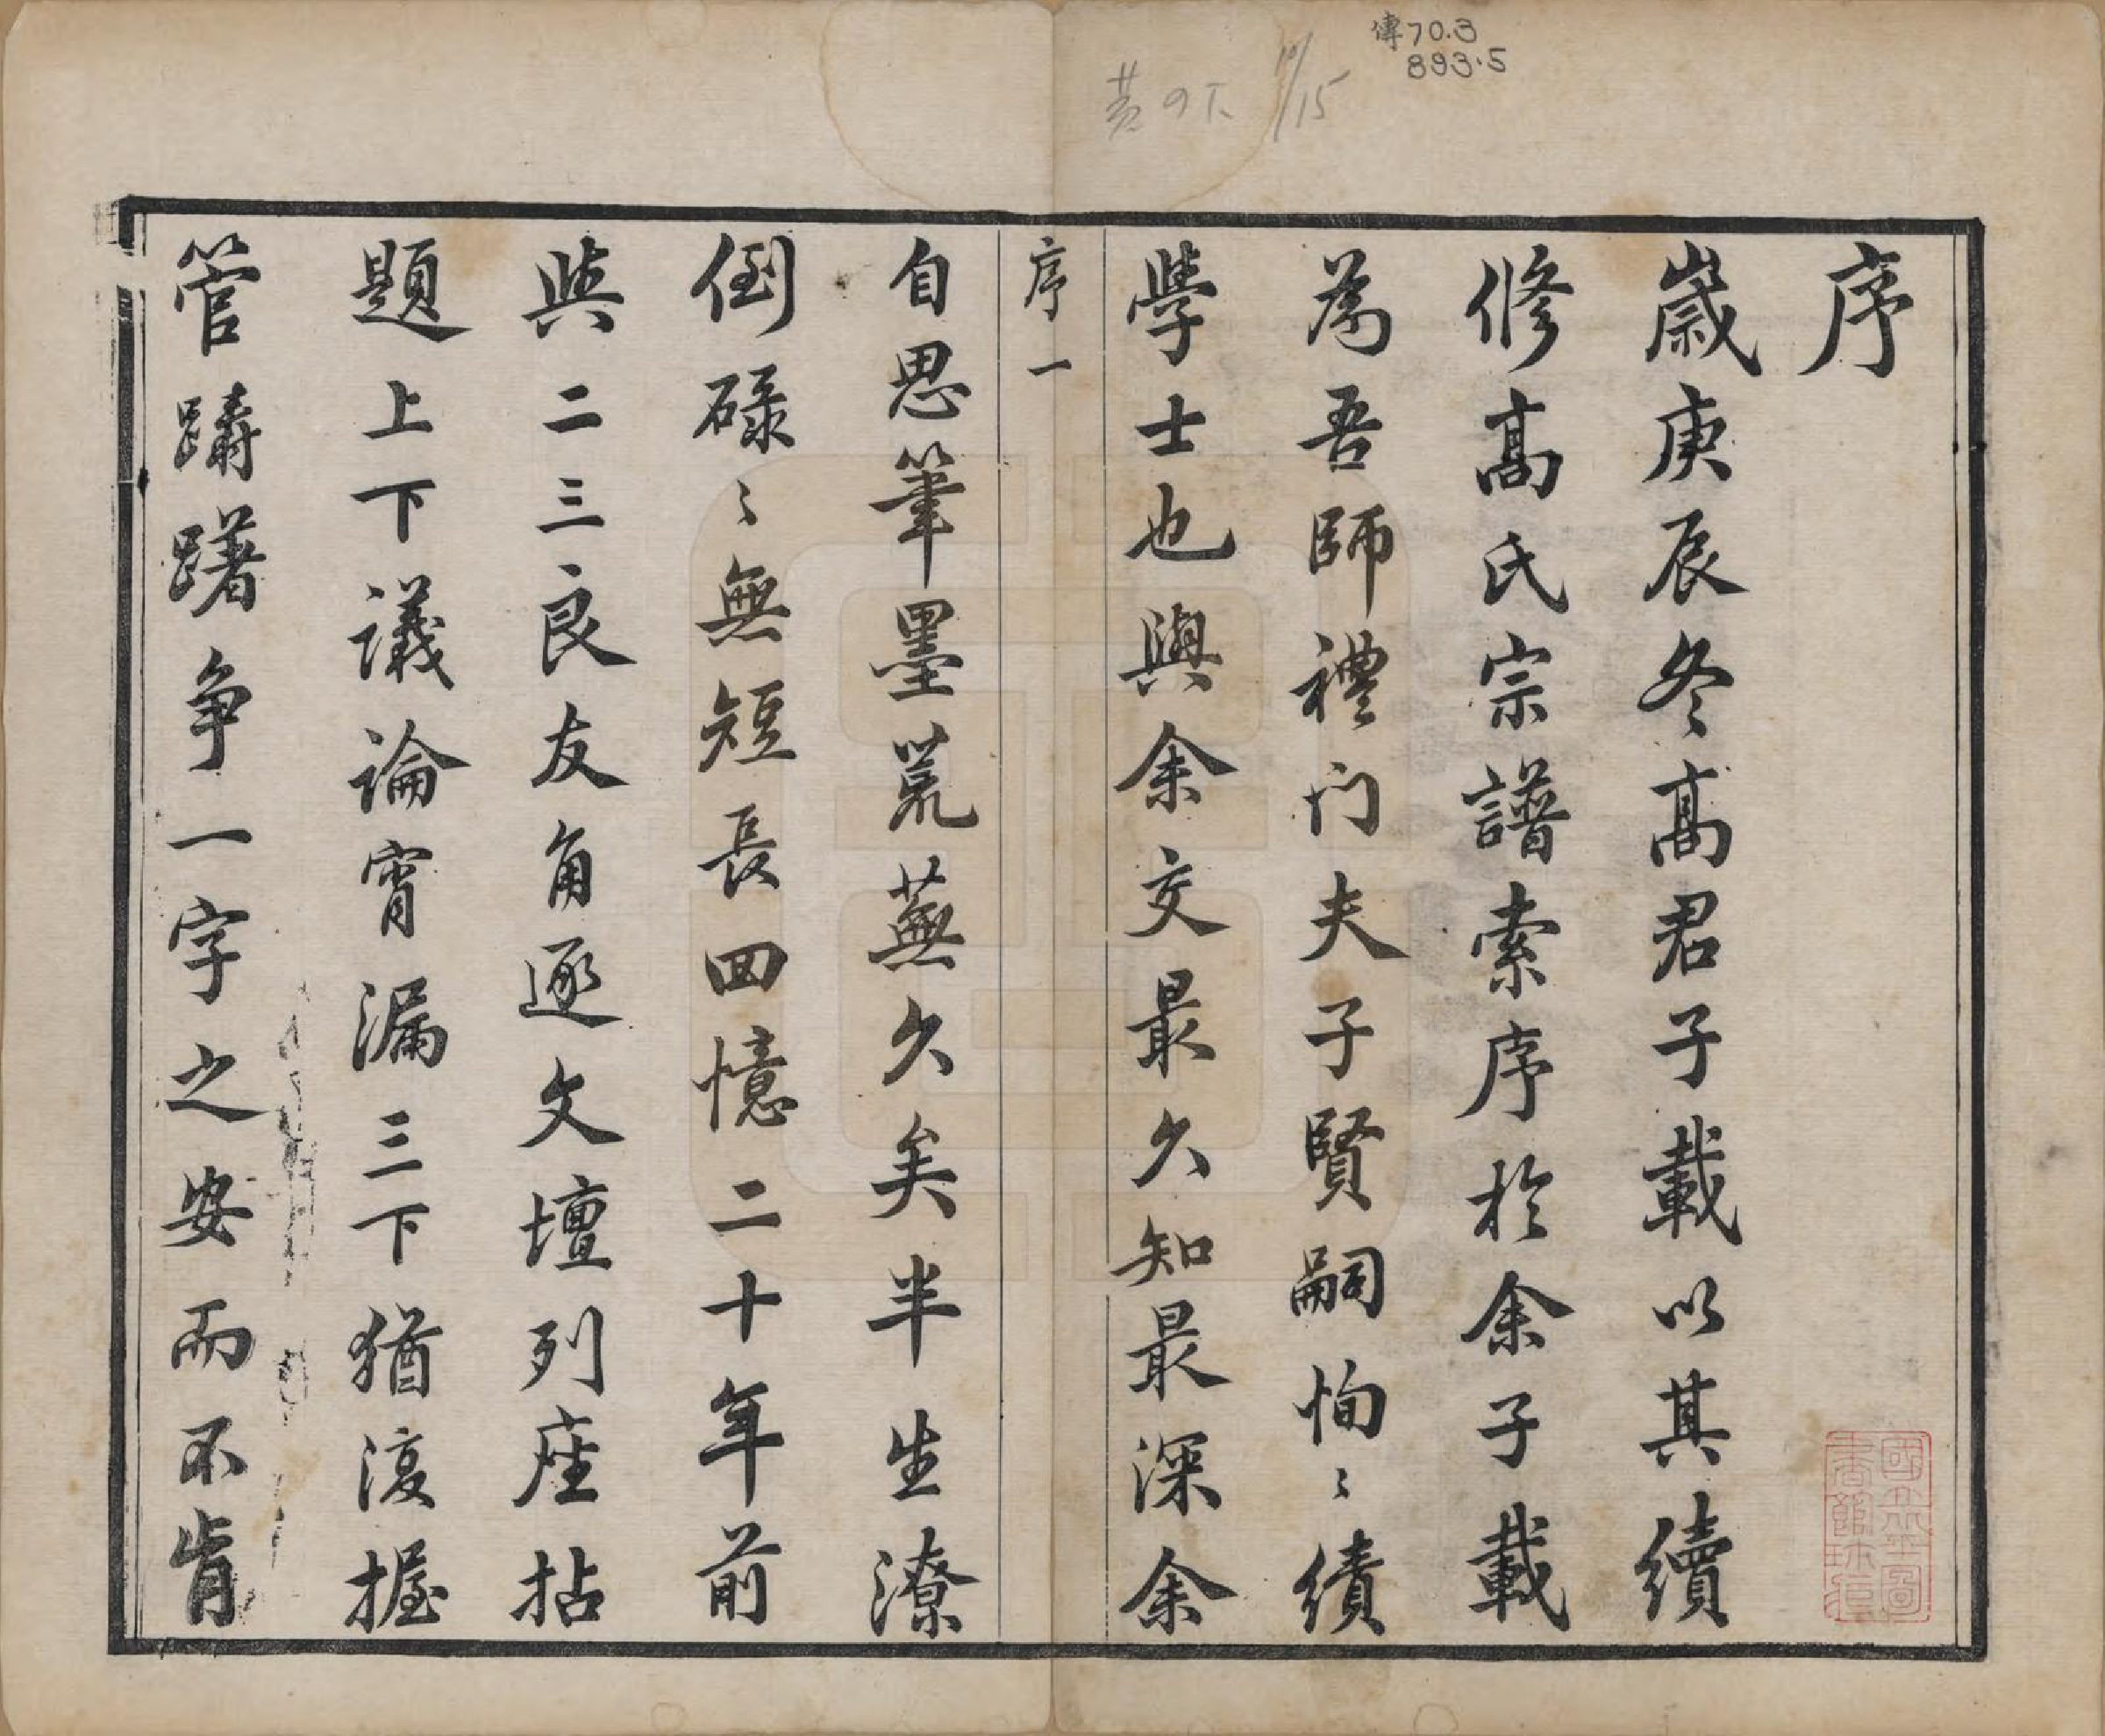 傳70.3
893.5
10/15
序
歲庚辰冬高君子載以其續
修高氏宗譜索序於余子載
為吾師禮门夫子賢嗣恂〻績
學士也與余交最久知最深余
序一
自思筆墨荒蕪久矣半生潦
倒碌〻無短長回憶二十年前
與二三良友角逐文壇列座拈
題上下議論宵漏三下猶復握
管躊躇争一字之安而不肯